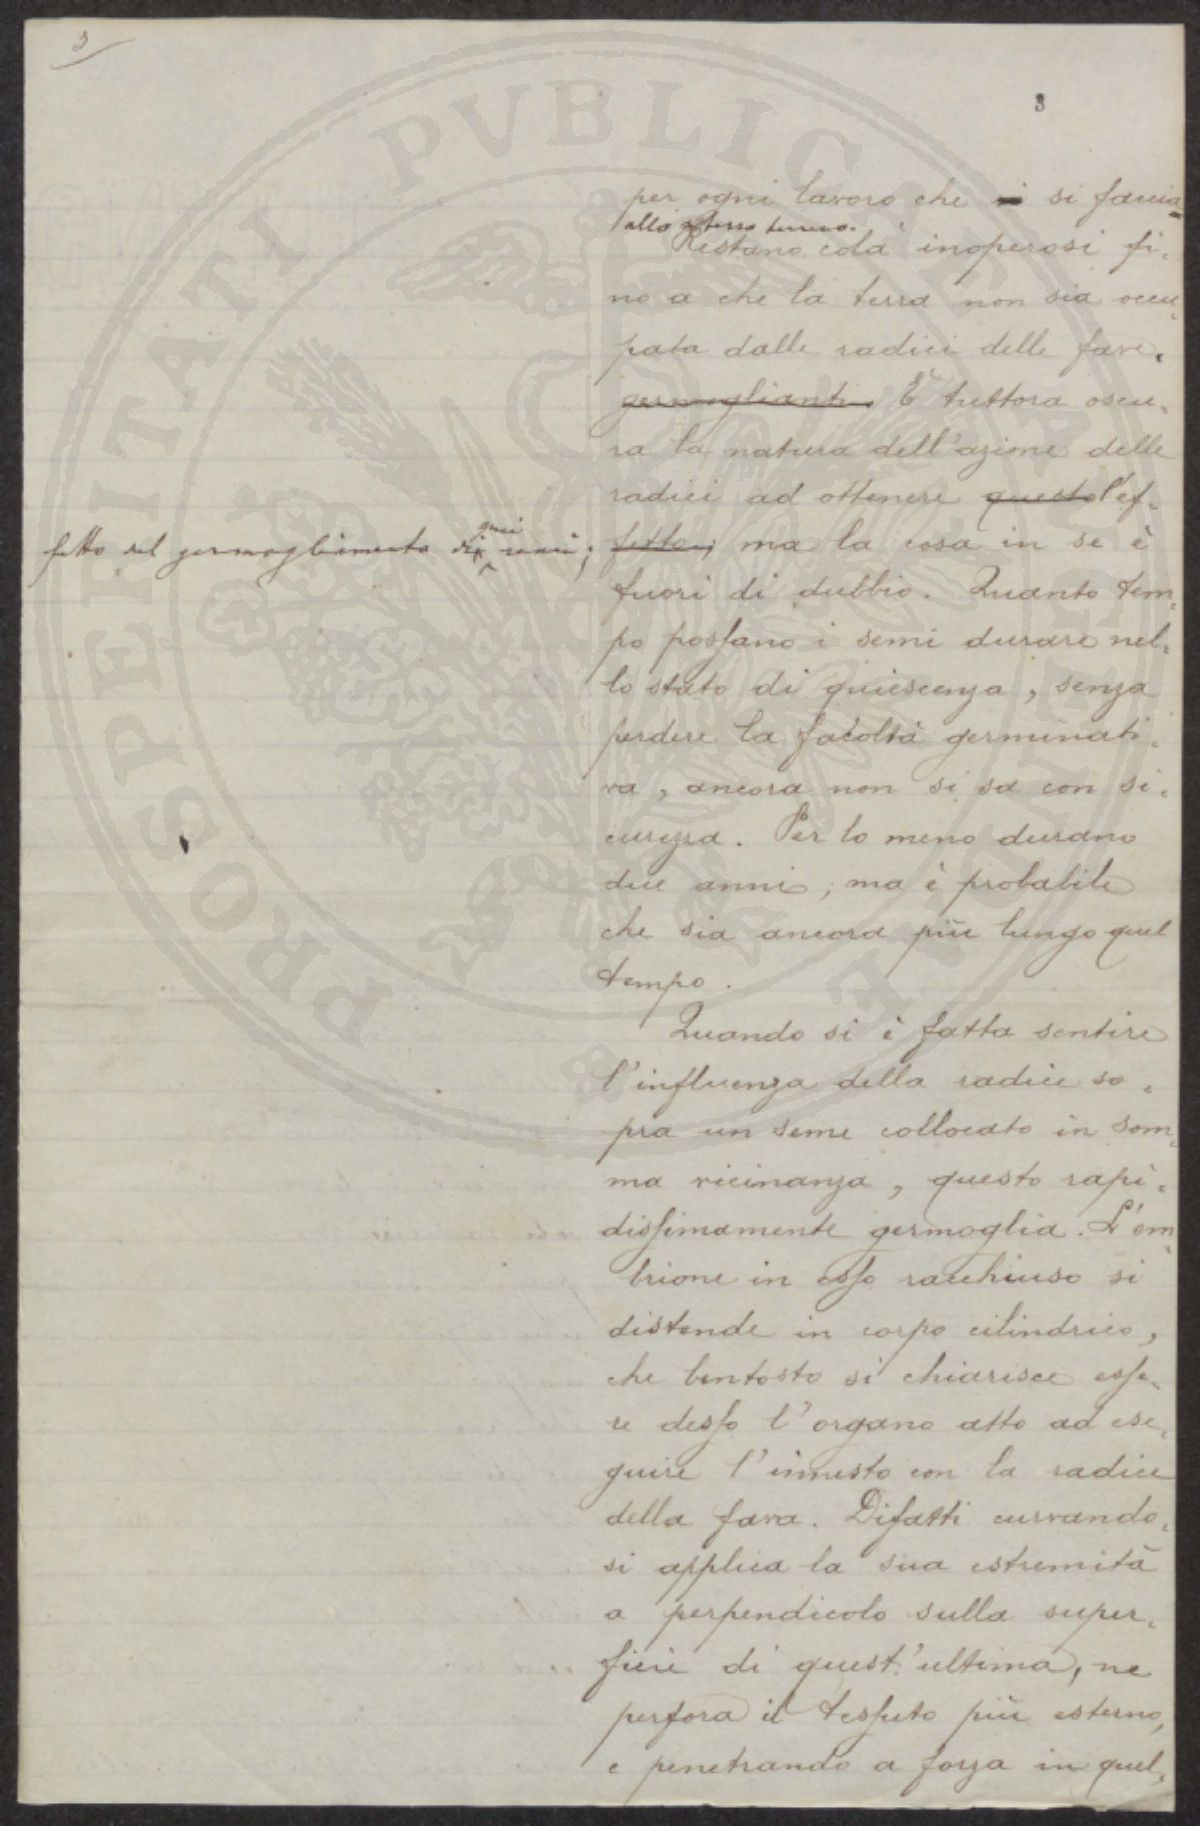 3
3
per ogni lavoro che si faccia
allo stesso terreno.
Restano colà inoperosi fi-
no a che la terra non sia occu-
pata dalle radici delle fave.
germoglianti È tuttora oscu-
ra la natura dell'azione delle
radici ad ottenere questo l'ef-
fetto sul germogliamento di quei semi;
fetto; ma la cosa in se è
fuori di dubbio. Quanto tem-
po possano i semi durare nel-
lo stato di quiescenza, senza
perdere la facoltà germinati-
va, ancora non si sa con si-
curezza. Per lo meno durano
due anni; ma è probabile
che sia ancora più lungo quel
tempo.
Quando si è fatta sentire
l'influenza della radice so-
pra un seme collocato in som-
ma vicinanza, questo rapi-
dissimamente germoglia. L'em-
brione in esso racchiuso si
distende in corpo cilindrico,
che bentosto si chiarisce esse-
re desso l'organo atto ad ese-
guire l'innesto con la radice
della fava. Difatti curvando-
si applica la sua estremità
a perpendicolo sulla super-
ficie di quest'ultima, ne
perfora il tessuto più esterno,
e penetrando a forza in quel-
PROSPERITATI PVBLICAE